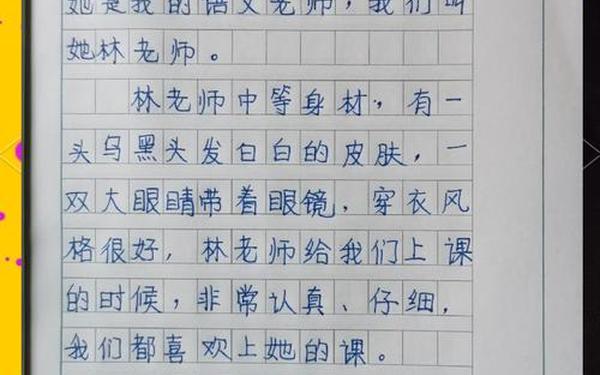 她是我的语文老师，我们叫
她林老师。
林老师中等身材，有一
头乌黑头发白白的皮肤，一
双大眼睛带着眼镜，穿衣风
格很好，林老师给我们上课
的时候，非常认真、仔细，
我们都喜欢上她的课。